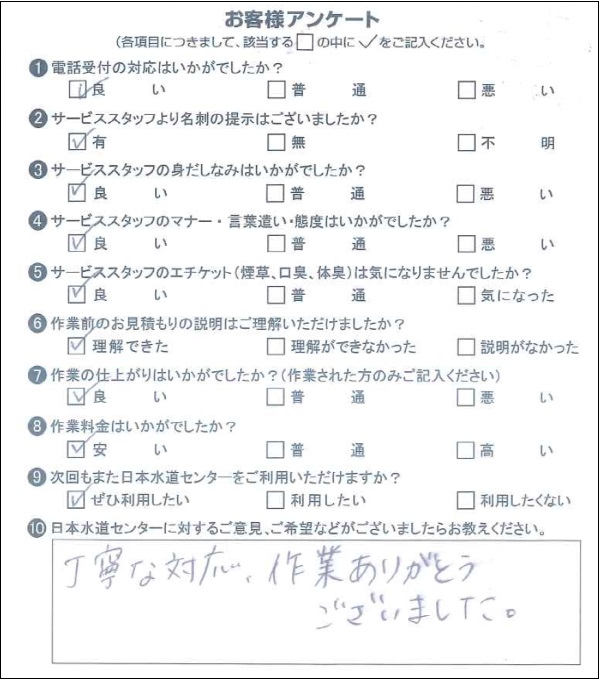 お客様アンケート
(各項目につきまして、該当する□の中に✓をご記入ください。
❶電話受付の対応はいかがでしたか?
☑良い □普通 □悪い
❷サービススタッフより名刺の提示はございましたか?
☑有 □無 □不明
❸サービススタッフの身だしなみはいかがでしたか?
☑良い □普通 □悪い
❹サービススタッフのマナー・言葉遣い・態度はいかがでしたか?
☑良い □普通 □悪い
❺サービススタッフのエチケット(煙草、口臭、体臭)は気になりませんでしたか?
☑良い □普通 □気になった
❻作業前のお見積もりの説明はご理解いただけましたか?
☑理解できた □理解ができなかった □説明がなかった
❼作業の仕上がりはいかがでしたか?(作業された方のみご記入ください)
☑良い □普通 □悪い
❽作業料金はいかがでしたか?
☑安い □普通 □高い
❾次回もまた日本水道センターをご利用いただけますか?
☑ぜひ利用したい □利用したい □利用したくない
❿日本水道センターに対するご意見、ご希望などがございましたらお教えください。
丁寧な対応、作業ありがとう
ございました。